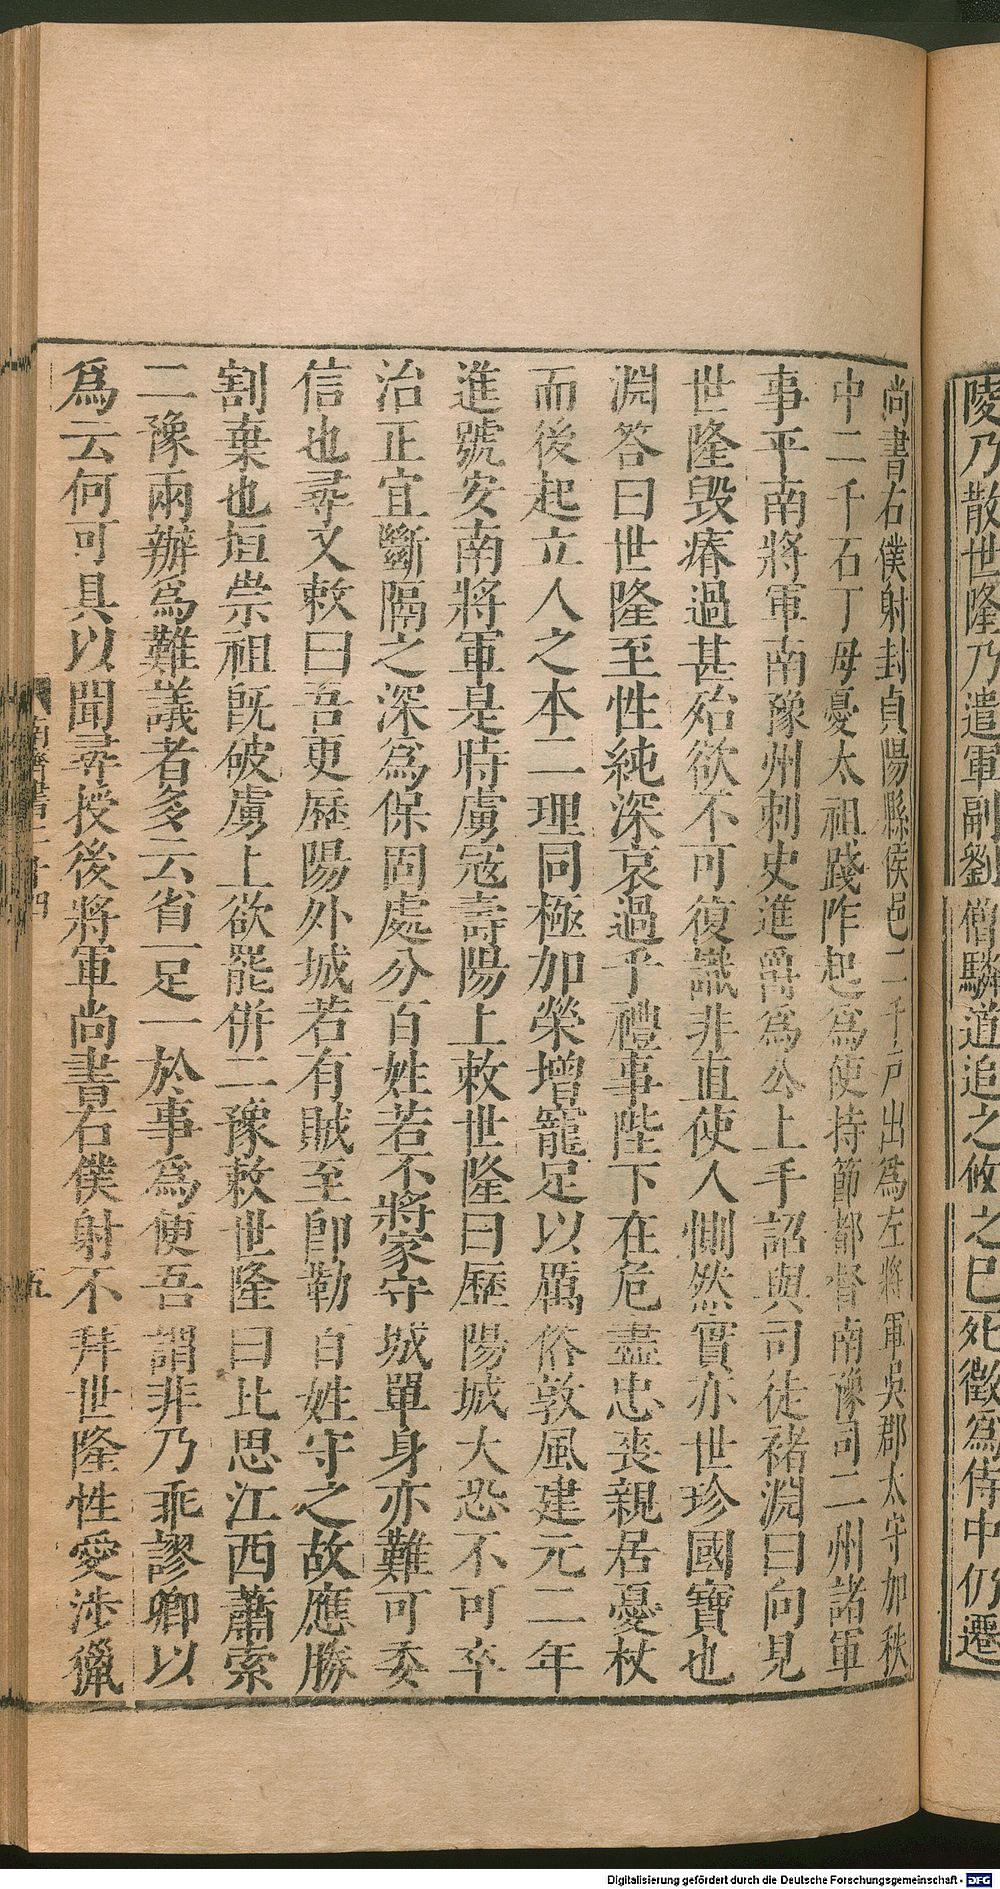 陵乃散世隆乃遣軍副劉僧驎道追之攸之已死徵爲侍中仍遷
尚書右僕射封貞陽縣侯邑二千戸出爲左將軍吳郡太守加秩
中二千石丁母憂太祖踐阼起爲使持節都督南豫司二州諸軍
事平南將軍南豫州刺史進爵爲公上手詔與司徒褚淵曰向見
世隆毀瘠過甚殆欲不可復識非直使人惻然實亦世珍國寶也
淵答曰世隆至性純深哀過乎禮事陛下在危盡忠喪親居憂杖
而後起立人之本二理同極加榮增寵足以厲俗敦風建元二年
進號安南將軍是時虜寇壽陽上敕世隆曰歷陽城大恐不可卒
治正宜斷隔之深爲保固處分百姓若不將家守城單身亦難可委
信也尋又敕曰吾更歷陽外城若有賊至卽勒百姓守之故應勝
割棄也垣崇祖旣破虜上欲罷併二豫敕世隆曰比思江西蕭索
二豫兩辦爲難議者多云省一足一於事爲便吾謂非乃乖謬卿以
爲云何可具以聞尋授後將軍尚書右僕射不拜世隆性愛涉獵
南齊書二十四
五
Digitalisierung gefördert durch die Deutsche Forschungsgemeinschaft - DFG